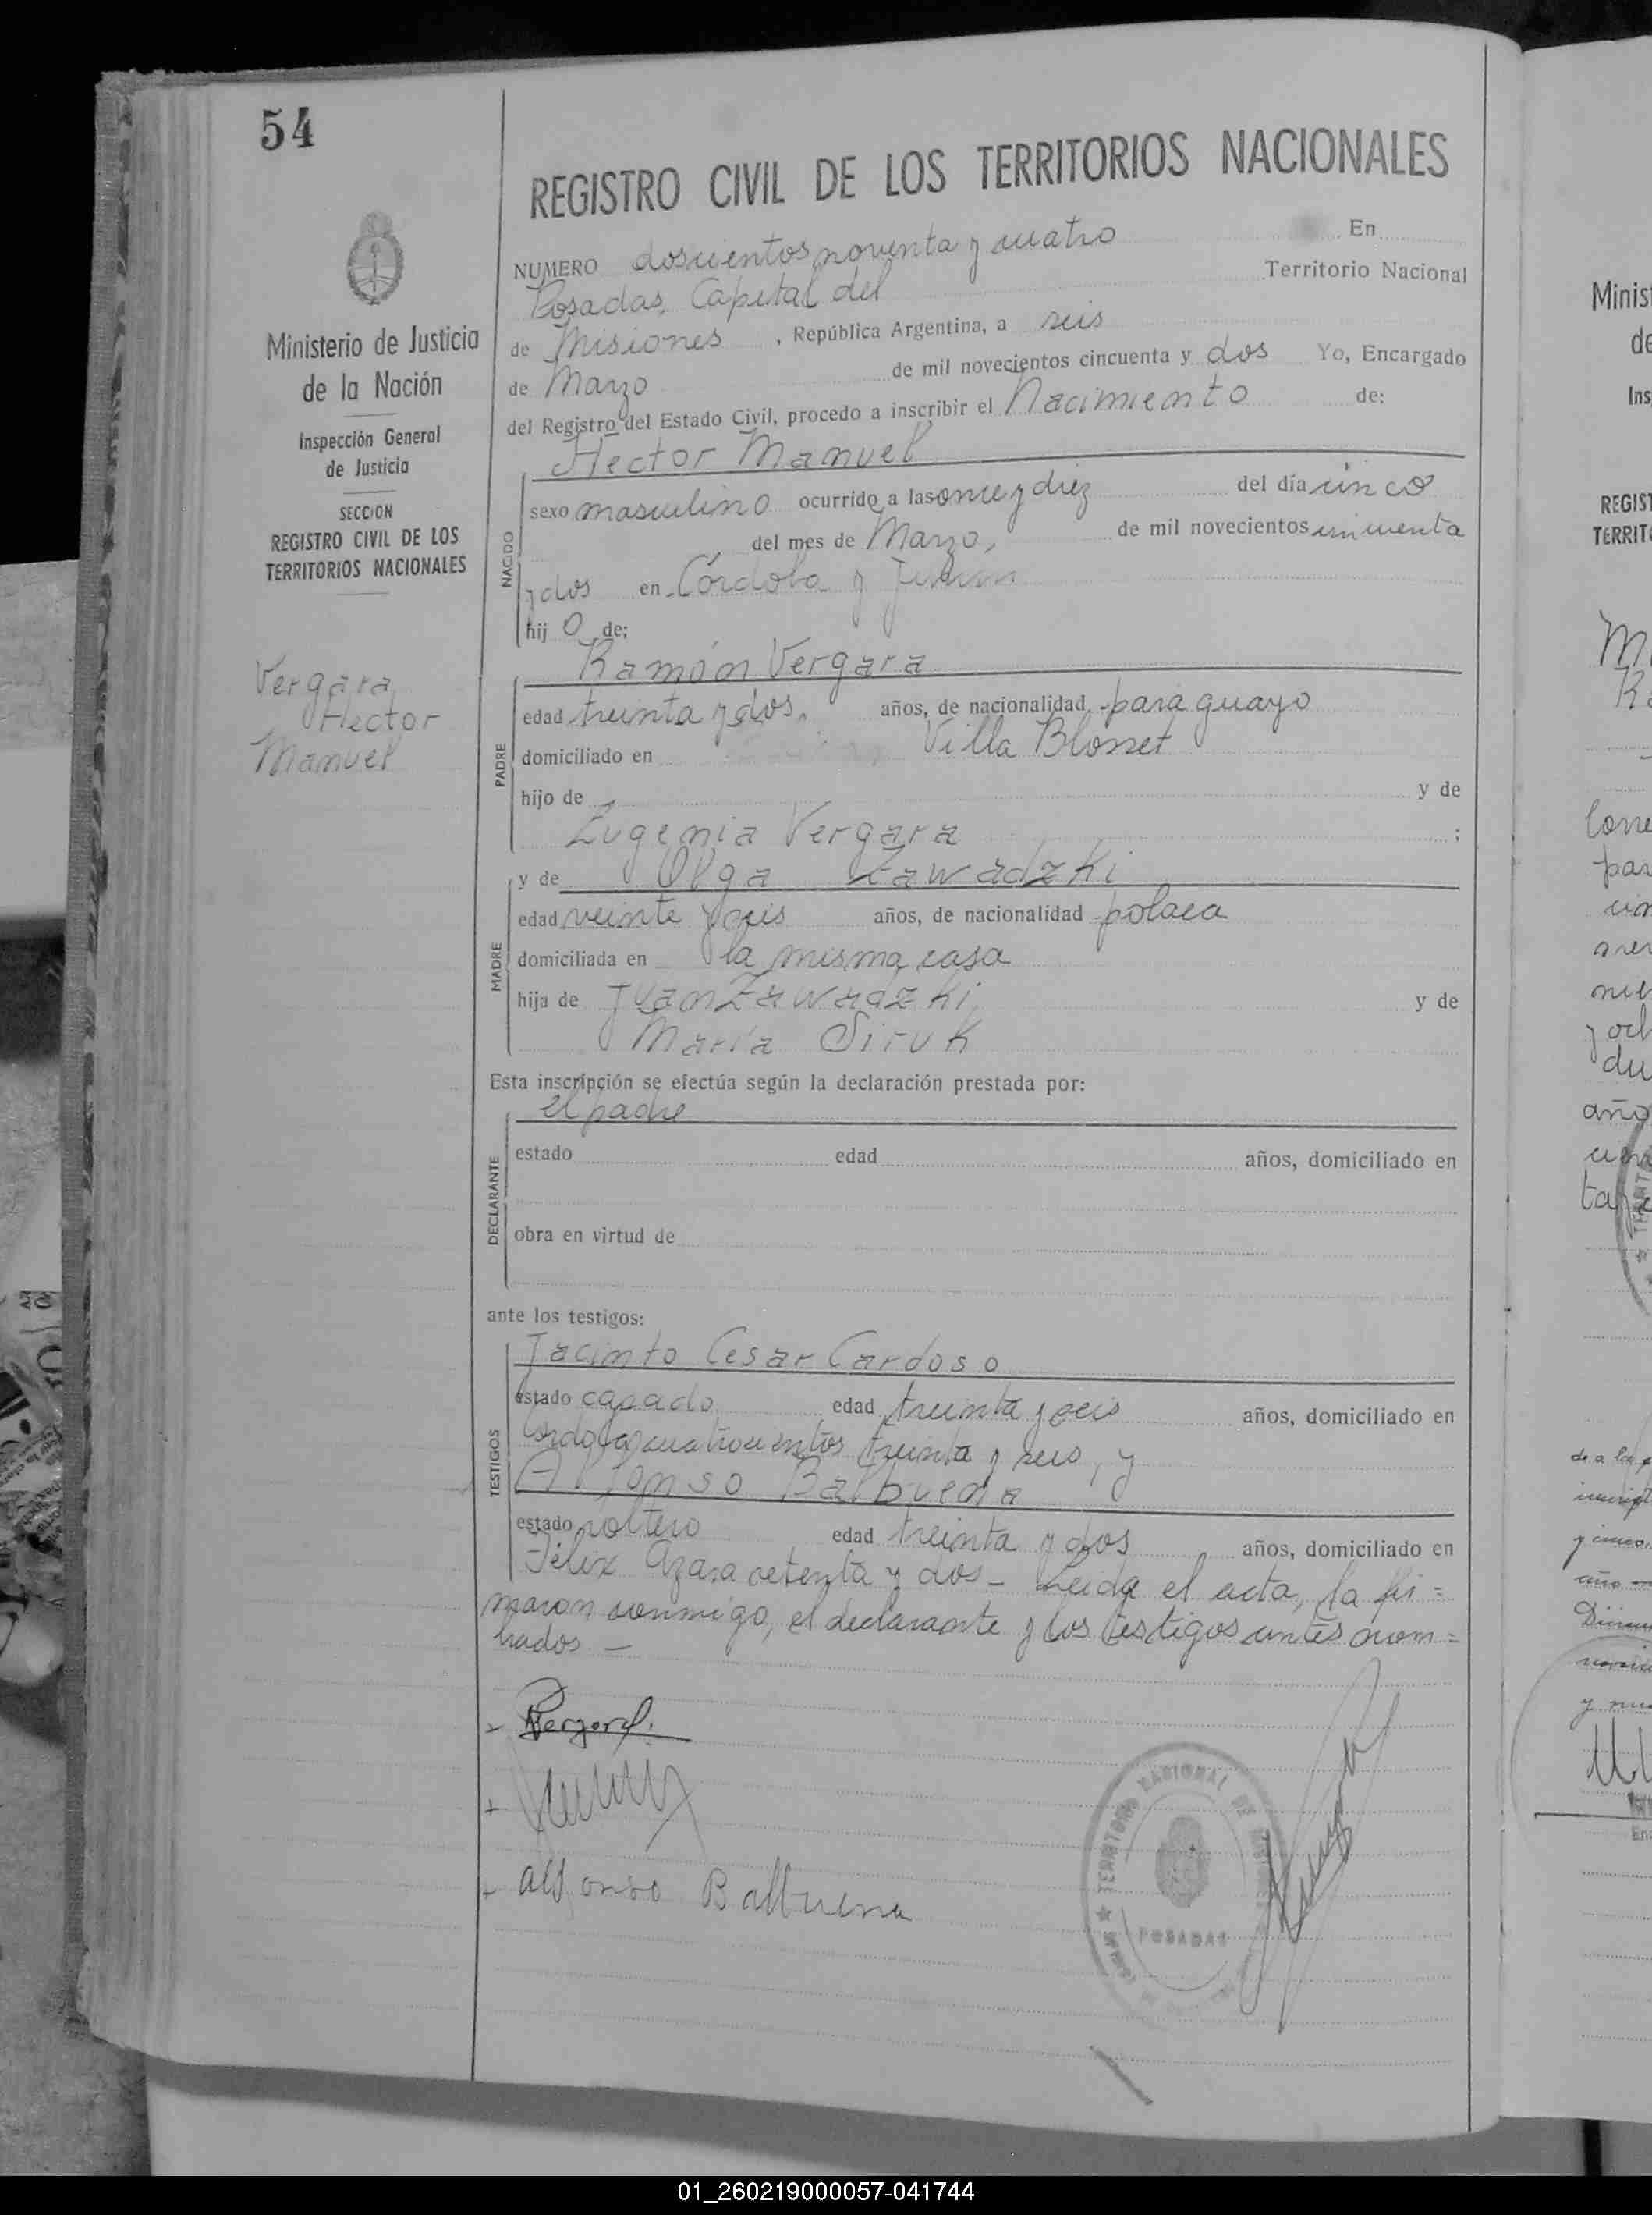 54
REGISTRO CIVIL DE LOS TERRITORIOS NACIONALES
NUMERO doscientos noventa y cuatro En
Posadas, Capital del Territorio Nacional
de Misiones, República Argentina, a seis
de Marzo de mil novecientos cincuenta y dos Yo, Encargado
del Registro del Estado Civil, procedo a inscribir el Nacimiento de:
Hector Manuel
sexo masculino ocurrido a las once y diez del día cinco
del mes de Marzo, de mil novecientos cincuenta
y dos en Córdoba y Junin
hijo de:
NACIDO
Ramón Vergara
edad treinta y dos, años, de nacionalidad paraguayo
domiciliado en Villa Blosset
hijo de y de
Eugenia Vergara ;
PADRE
y de Olga Zawadzki
edad veinte y seis años, de nacionalidad polaca
domiciliada en la misma casa
hija de Juan Zawadzki y de
María Siruk
MADRE
Esta inscripción se efectúa según la declaración prestada por:
el padre
estado edad años, domiciliado en
obra en virtud de
DECLARANTE
ante los testigos:
Jacinto Cesar Cardoso
estado casado edad treinta y seis años, domiciliado en
Cordoba cuatrocientos treinta y seis, y
Alfonso Balbuena
estado soltero edad treinta y dos años, domiciliado en
Félix Azara setenta y dos - Leida el acta, la fir=
maron conmigo, el declarante y los testigos antes nom=
brados —
TESTIGOS
Alfonso Balbuena
TERRITORIO NACIONAL DE MISIONES
POSADAS
Ministerio de Justicia
de la Nación
Inspección General
de Justicia
SECCION
REGISTRO CIVIL DE LOS
TERRITORIOS NACIONALES
Vergara
Hector
Manuel
01_260219000057-041744